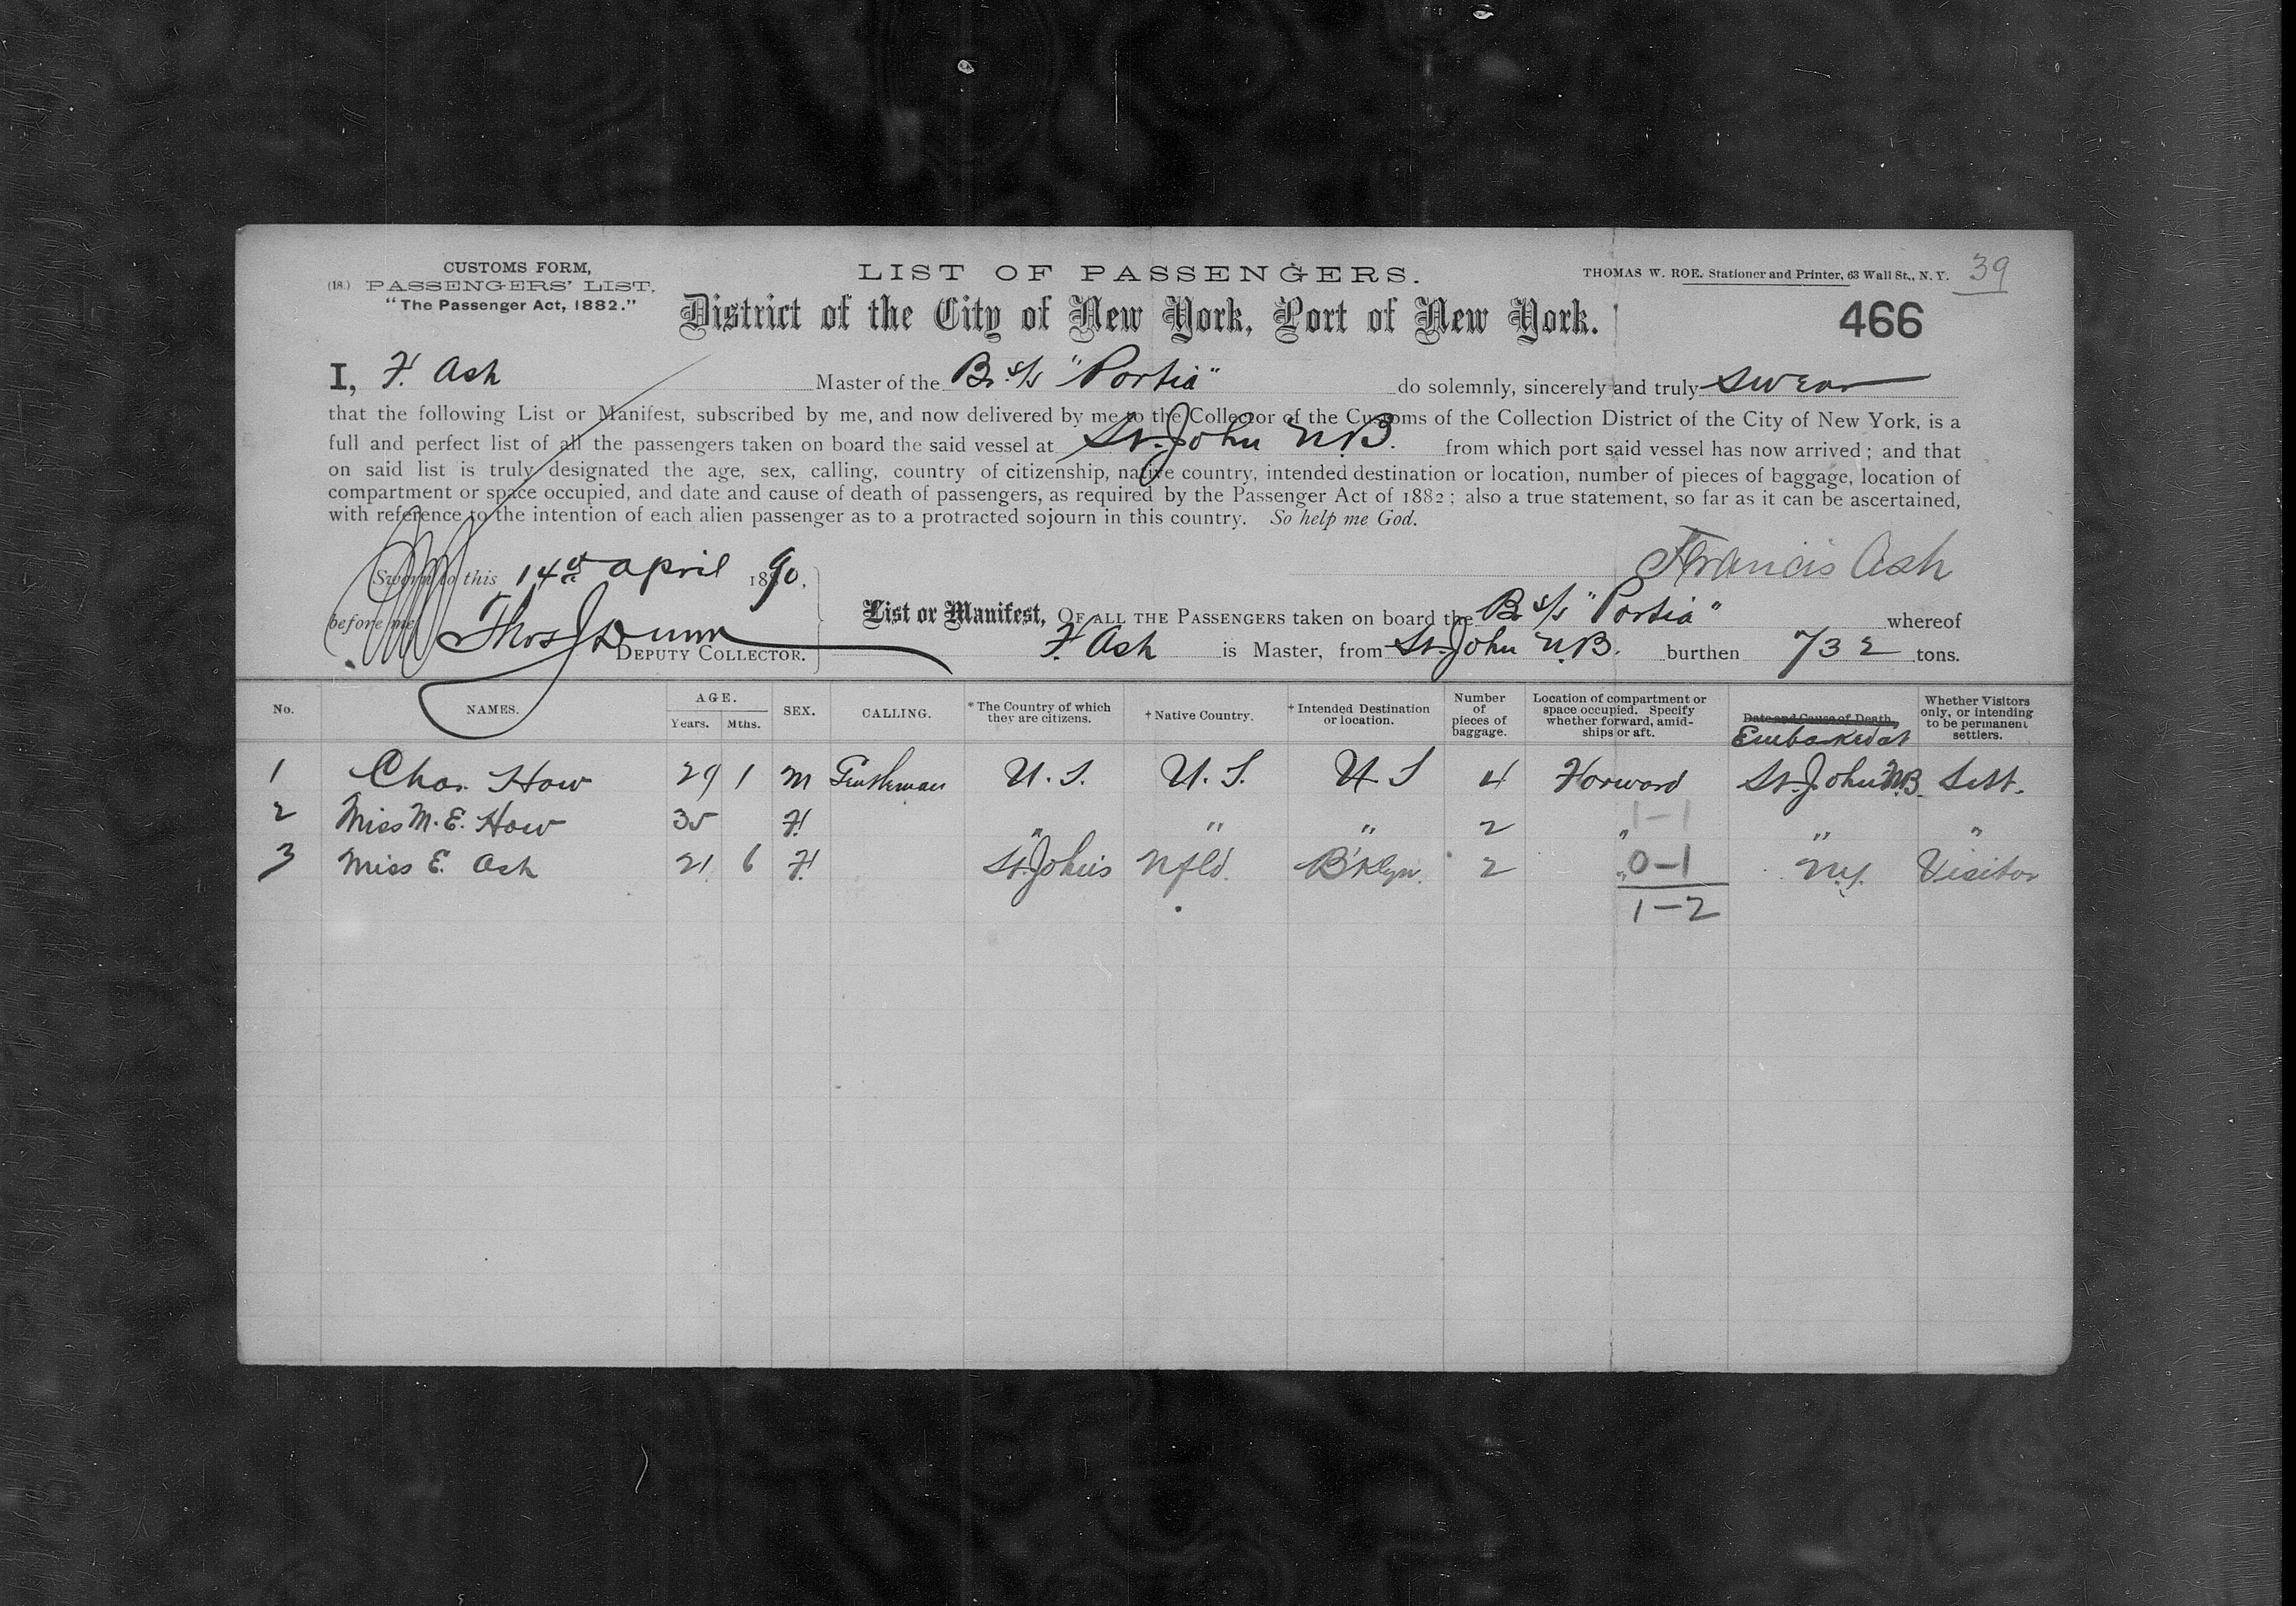 CUSTOMS FORM,
(18.) PASSENGERS' LIST.
"The Passenger Act, 1882."
LIST OF PASSENGERS.
THOMAS W. ROE, Stationer and Printer, 63 Wall St., N. Y. 39
District of the City of New York, Port of New York.
466
I, F. Ash Master of the Br. s/s "Portia" do solemnly, sincerely and truly swear
that the following List or Manifest, subscribed by me, and now delivered by me to the Collector of the Customs of the Collection District of the City of New York, is a
full and perfect list of all the passengers taken on board the said vessel at St. John N.B. from which port said vessel has now arrived; and that
on said list is truly designated the age, sex, calling, country of citizenship, native country, intended destination or location, number of pieces of baggage, location of
compartment or space occupied, and date and cause of death of passengers, as required by the Passenger Act of 1882; also a true statement, so far as it can be ascertained,
with reference to the intention of each alien passenger as to a protracted sojourn in this country. So help me God.
Francis Ash
Sworn to this 14th April 1890,
before me Thos J Dunn
DEPUTY COLLECTOR.
List or Manifest, OF ALL THE PASSENGERS taken on board the Br s/s "Portia" whereof
F. Ash is Master, from St. John N.B. burthen 732 tons.
No. NAMES. AGE. Years. Mths. SEX. CALLING. * The Country of which they are citizens. † Native Country. † Intended Destination or location. Number of pieces of baggage. Location of compartment or space occupied. Specify whether forward, amidships or aft. Date and Cause of Death. Embarked at Whether Visitors only, or intending to be permanent settlers.
1 Chas. How 29 1 M Gentleman U.S. U.S. U S 4 Forward St. John N.B. Sett.
2 Miss M. E. How 35 F " " " 2 " 1-1 " "
3 Miss E. Ash 21 6 F St. John's Nfld. B'klyn. 2 " 0-1 Visitor
1-2